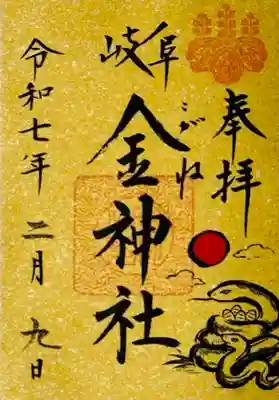 奉拝
岐阜
こがね
金神社
令和七年 二月 九日